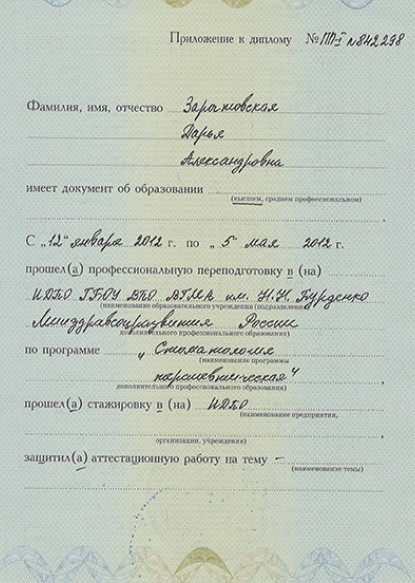 Приложение к диплому № ПП-I №842298
Фамилия, имя, отчество
Дарья
Александровна
имеет документ об образовании
(высшем, среднем профессиональном)
С „12“ января 2012 г. по „5“ мая 2012 г.
прошел(а) профессиональную переподготовку в (на)
ИДПО ГБОУ ВПО ВГМА им. Н.Н. Бурденко
(наименование образовательного учреждения (подразделения)
Минздравсоцразвития России
дополнительного профессионального образования)
по программе „Стоматология
(наименование программы
дополнительного профессионального образования)
прошел(а) стажировку в (на) ИДПО
(наименование предприятия,
организации, учреждения)
защитил(а) аттестационную работу на тему –
(наименование темы)